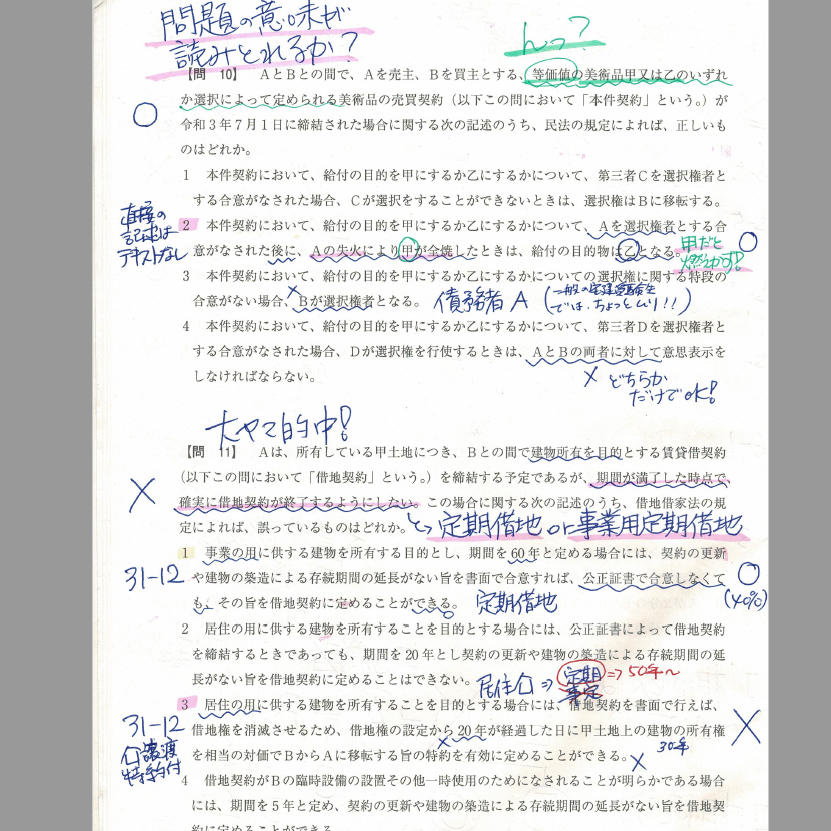 問題の意味が
読みとれるか?
んっ?
【問 10】 AとBとの間で、Aを売主、Bを買主とする、等価値の美術品甲又は乙のいずれ
か選択によって定められる美術品の売買契約（以下この問において「本件契約」という。）が
令和3年7月1日に締結された場合に関する次の記述のうち、民法の規定によれば、正しいも
のはどれか。
1 本件契約において、給付の目的を甲にするか乙にするかについて、第三者Cを選択権者と
する合意がなされた場合、Cが選択をすることができないときは、選択権はBに移転する。
直接の
記述は
テキストなし
2 本件契約において、給付の目的を甲にするか乙にするかについて、Aを選択権者とする合
意がなされた後に、Aの失火により甲が全焼したときは、給付の目的物は乙となる。
甲だと
燃やかす!
3 本件契約において、給付の目的を甲にするか乙にするかについての選択権に関する特段の
合意がない場合、Bが選択権者となる。
債務者 A
では、ちょっとムリ!!
4 本件契約において、給付の目的を甲にするか乙にするかについて、第三者Dを選択権者と
する合意がなされた場合、Dが選択権を行使するときは、AとBの両者に対して意思表示を
しなければならない。
× どちらか
だけでOK!
大ヤマ的中!
【問 11】 Aは、所有している甲土地につき、Bとの間で建物所有を目的とする賃貸借契約
（以下この問において「借地契約」という。）を締結する予定であるが、期間が満了した時点で、
確実に借地契約が終了するようにしたい。この場合に関する次の記述のうち、借地借家法の規
定によれば、誤っているものはどれか。
→ 定期借地 or 事業用定期借地
1 事業の用に供する建物を所有する目的とし、期間を60年と定める場合には、契約の更新
や建物の築造による存続期間の延長がない旨を書面で合意すれば、公正証書で合意しなくて
も、その旨を借地契約に定めることができる。
31-12
定期借地
(40%)
2 居住の用に供する建物を所有することを目的とする場合には、公正証書によって借地契約
を締結するときであっても、期間を20年とし契約の更新や建物の築造による存続期間の延
長がない旨を借地契約に定めることはできない。
居住 ⇒ 定期 ⇒ 50年~
3 居住の用に供する建物を所有することを目的とする場合には、借地契約を書面で行えば、
借地権を消滅させるため、借地権の設定から20年が経過した日に甲土地上の建物の所有権
を相当の対価でBからAに移転する旨の特約を有効に定めることができる。
31-12
譲渡
特約付
× 30年
4 借地契約がBの臨時設備の設置その他一時使用のためになされることが明らかである場合
には、期間を5年と定め、契約の更新や建物の築造による存続期間の延長がない旨を借地契
約に定めることができる。